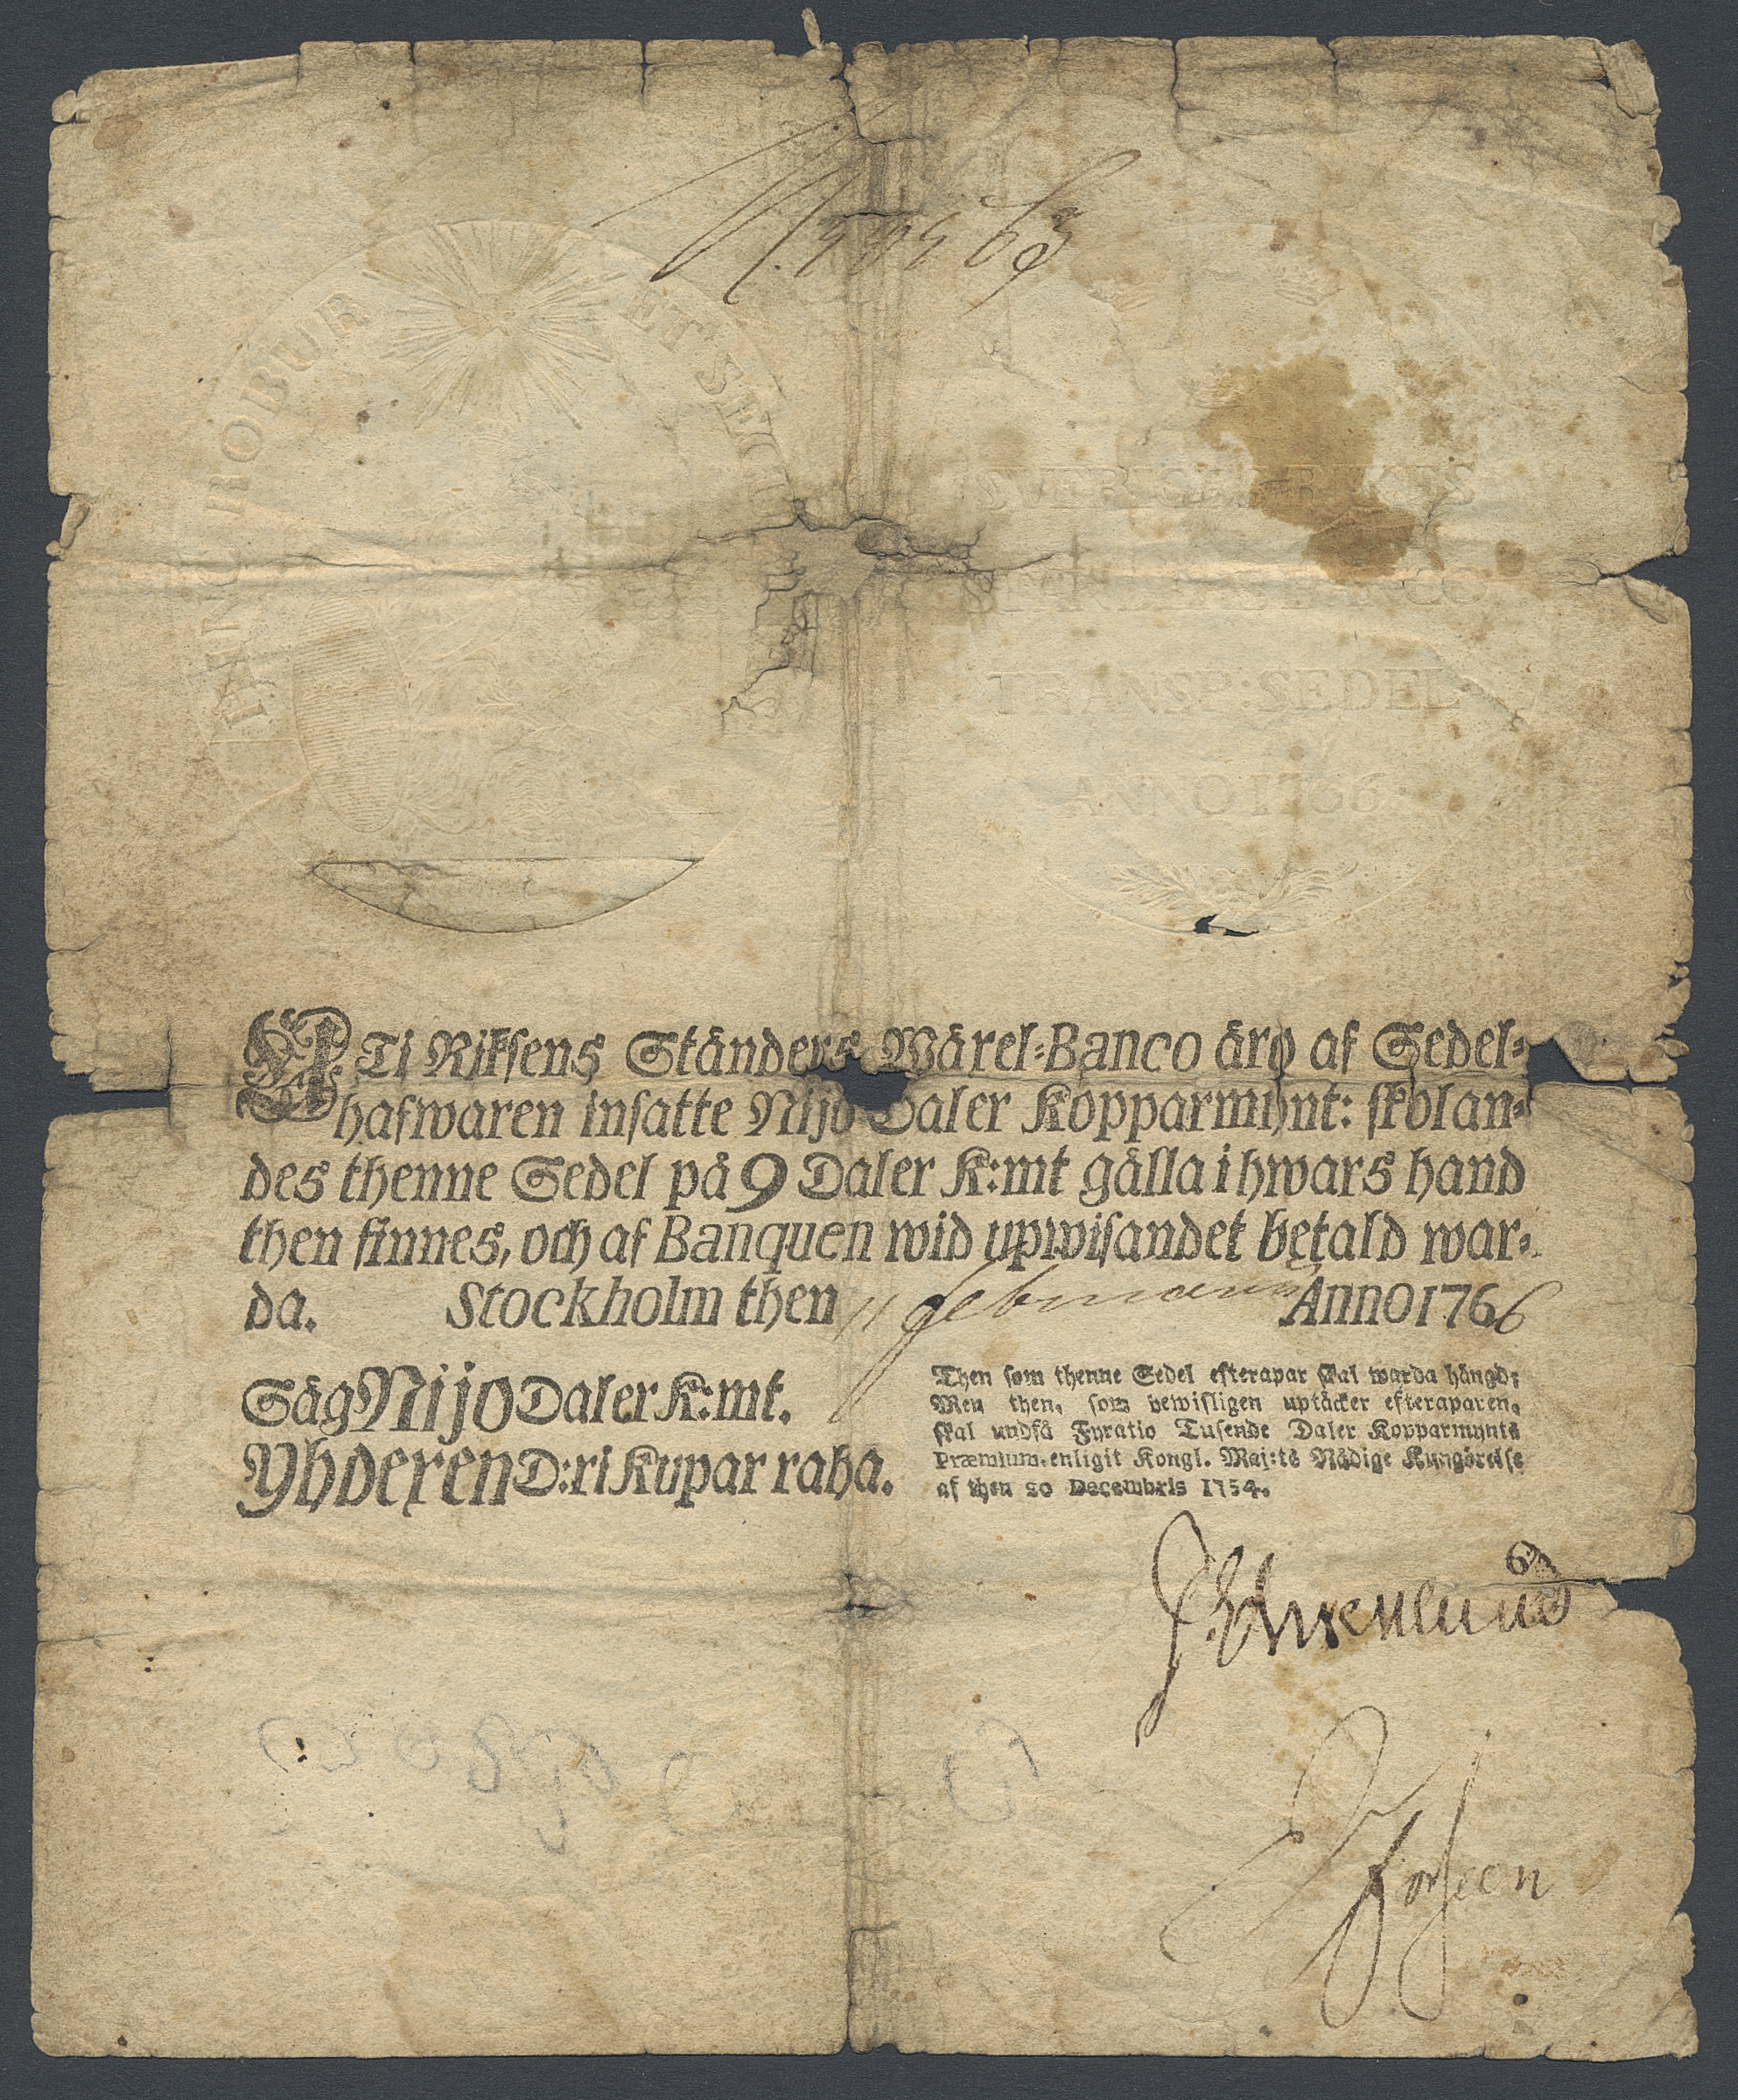 HINC ROBUR ET SECU
SVERIGES RIKES
STÄNDERS BANCO
TRANSP: SEDEL
ANNO 1766
UTi Riksens Ständers Wäxel=Banco äro af Sedel=
hafwaren insatte Nijo Daler Kopparmynt: skolan=
des thenne Sedel på 9 Daler K:mt gälla i hwars hand
then finnes, och af Banquen wid upwisandet betald war=
da. Stockholm then 11 Februarii Anno 1766
Säg Nijo Daler K:mt.
Yhdexen D:ri Kupar raha.
Then som thenne Sedel efterapar skal warda hängd;
Men then, som bewisligen uptäcker efteraparen,
skal undfå Fyratio Tusende Daler Kopparmynts
Præmium, enligit Kongl. Maj:ts Nådige Kungörelse
af then 20 Decembris 1754.